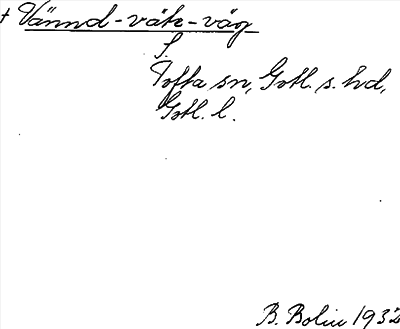 † Vännd-väk-väg
f.
Tofta sn, Gotl. s. hd,
Gotl. l.
B. Bolin 1932